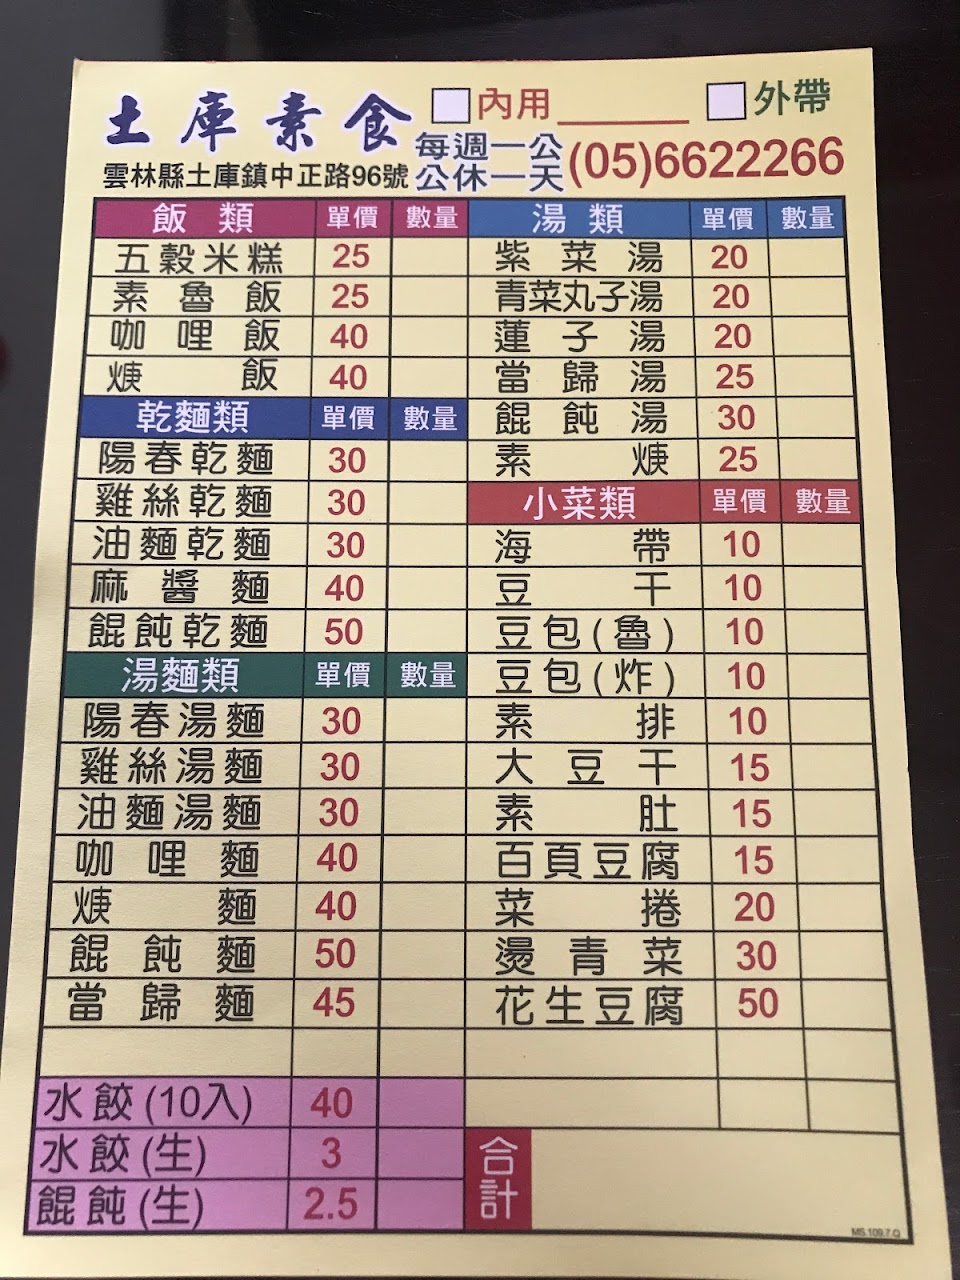 土庫素食 內用 外帶
雲林縣土庫鎮中正路96號 每週一公 公休一天 (05)6622266
飯類 單價 數量
五穀米糕 25
素魯飯 25
咖哩飯 40
焿飯 40
乾麵類 單價 數量
陽春乾麵 30
雞絲乾麵 30
油麵乾麵 30
麻醬麵 40
餛飩乾麵 50
湯麵類 單價 數量
陽春湯麵 30
雞絲湯麵 30
油麵湯麵 30
咖哩麵 40
焿麵 40
餛飩麵 50
當歸麵 45
水餃(10入) 40
水餃(生) 3
餛飩(生) 2.5
湯類 單價 數量
紫菜湯 20
青菜丸子湯 20
蓮子湯 20
當歸湯 25
餛飩湯 30
素焿 25
小菜類 單價 數量
海帶 10
豆干 10
豆包(魯) 10
豆包(炸) 10
素排 10
大豆干 15
素肚 15
百頁豆腐 15
菜捲 20
燙青菜 30
花生豆腐 50
合計
MS.109.7.Q